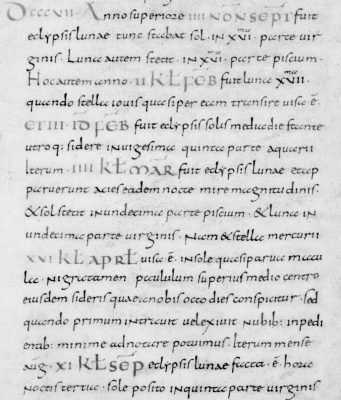 DCCCVII · Anno superiore · IIII NON SEPT fuit
eclypsis lunae tunc stabat sol · in XVI · parte vir
ginis · Luna autem stetit · in XVI · parte piscium ·
Hoc autem anno · II KL FEB fuit luna XVII ·
quando stella iovis quasi per eam transire visa ē ·
ET III · ID FEB fuit eclypsis solis media die stante
utroq; sidere in vigesima quinta parte aquarii
Iterum · IIII KL MAR fuit eclypsis lunae et ap
paruerunt acies eadem nocte mire magnitudinis ·
& sol stetit in undecima parte piscium · & luna in
undecima parte virginis · Nam & stella mercurii
XVI KL APRL visa · ē · in sole quasi parva macu
la · nigra tamen paululum superius medio centro
eiusdem sideris quae a nobis octo dies conspicitur · sed
quando primum intravit vel exivit nubib; inpedi
entib; minime adnotare potuimus · Iterum mense
aug · XI KL SEP eclypsis lunae facta · ē · hora
noctis tertia · sole posito in quinta parte virginis